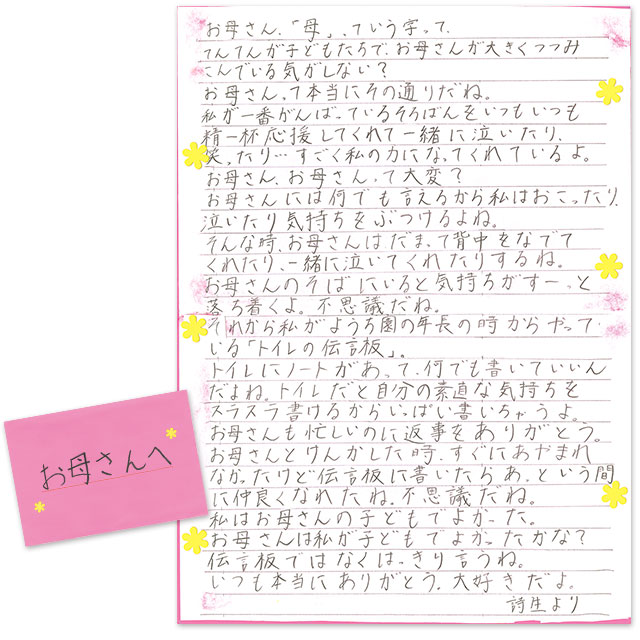 お母さん、「母」、ていう字って、
てんてんが子どもたちで、お母さんが大きくつつみ
こんでいる気がしない？
お母さんって本当にその通りだね。
私が一番がんばっているそろばんをいつもいつも
精一杯応援してくれて一緒に泣いたり、
笑ったり…すごく私の力になってくれているよ。
お母さん、お母さんって大変？
お母さんには何でも言えるから私はおこったり、
泣いたり気持ちをぶつけるよね。
そんな時、お母さんはだまって背中をなでて
くれたり、一緒に泣いてくれたりするね。
お母さんのそばにいると気持ちがすーっと
落ち着くよ。不思議だね。
それから私がようち園の年長の時からやって
いる「トイレの伝言板」。
トイレにノートがあって、何でも書いていいん
だよね。トイレだと自分の素直な気持ちを
スラスラ書けるからいっぱい書いちゃうよ。
お母さんも忙しいのに返事をありがとう。
お母さんとけんかした時、すぐにあやまれ
なかったけど伝言板に書いたらあっという間
に仲良くなれたね。不思議だね。
私はお母さんの子どもでよかった。
お母さんは私が子どもでよかったかな？
伝言板ではなくはっきり言うね。
いつも本当にありがとう。大好きだよ。
詩生より
お母さんへ